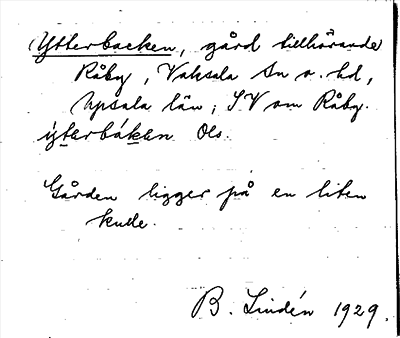 (Ytterbacken, gård tillhörande
Råby, Vaksala sn o. hd,
Upsala län; SV om Råby.
ýterbákan Ols.
Gården ligger på en liten
kulle.
B. Lindén 1929.